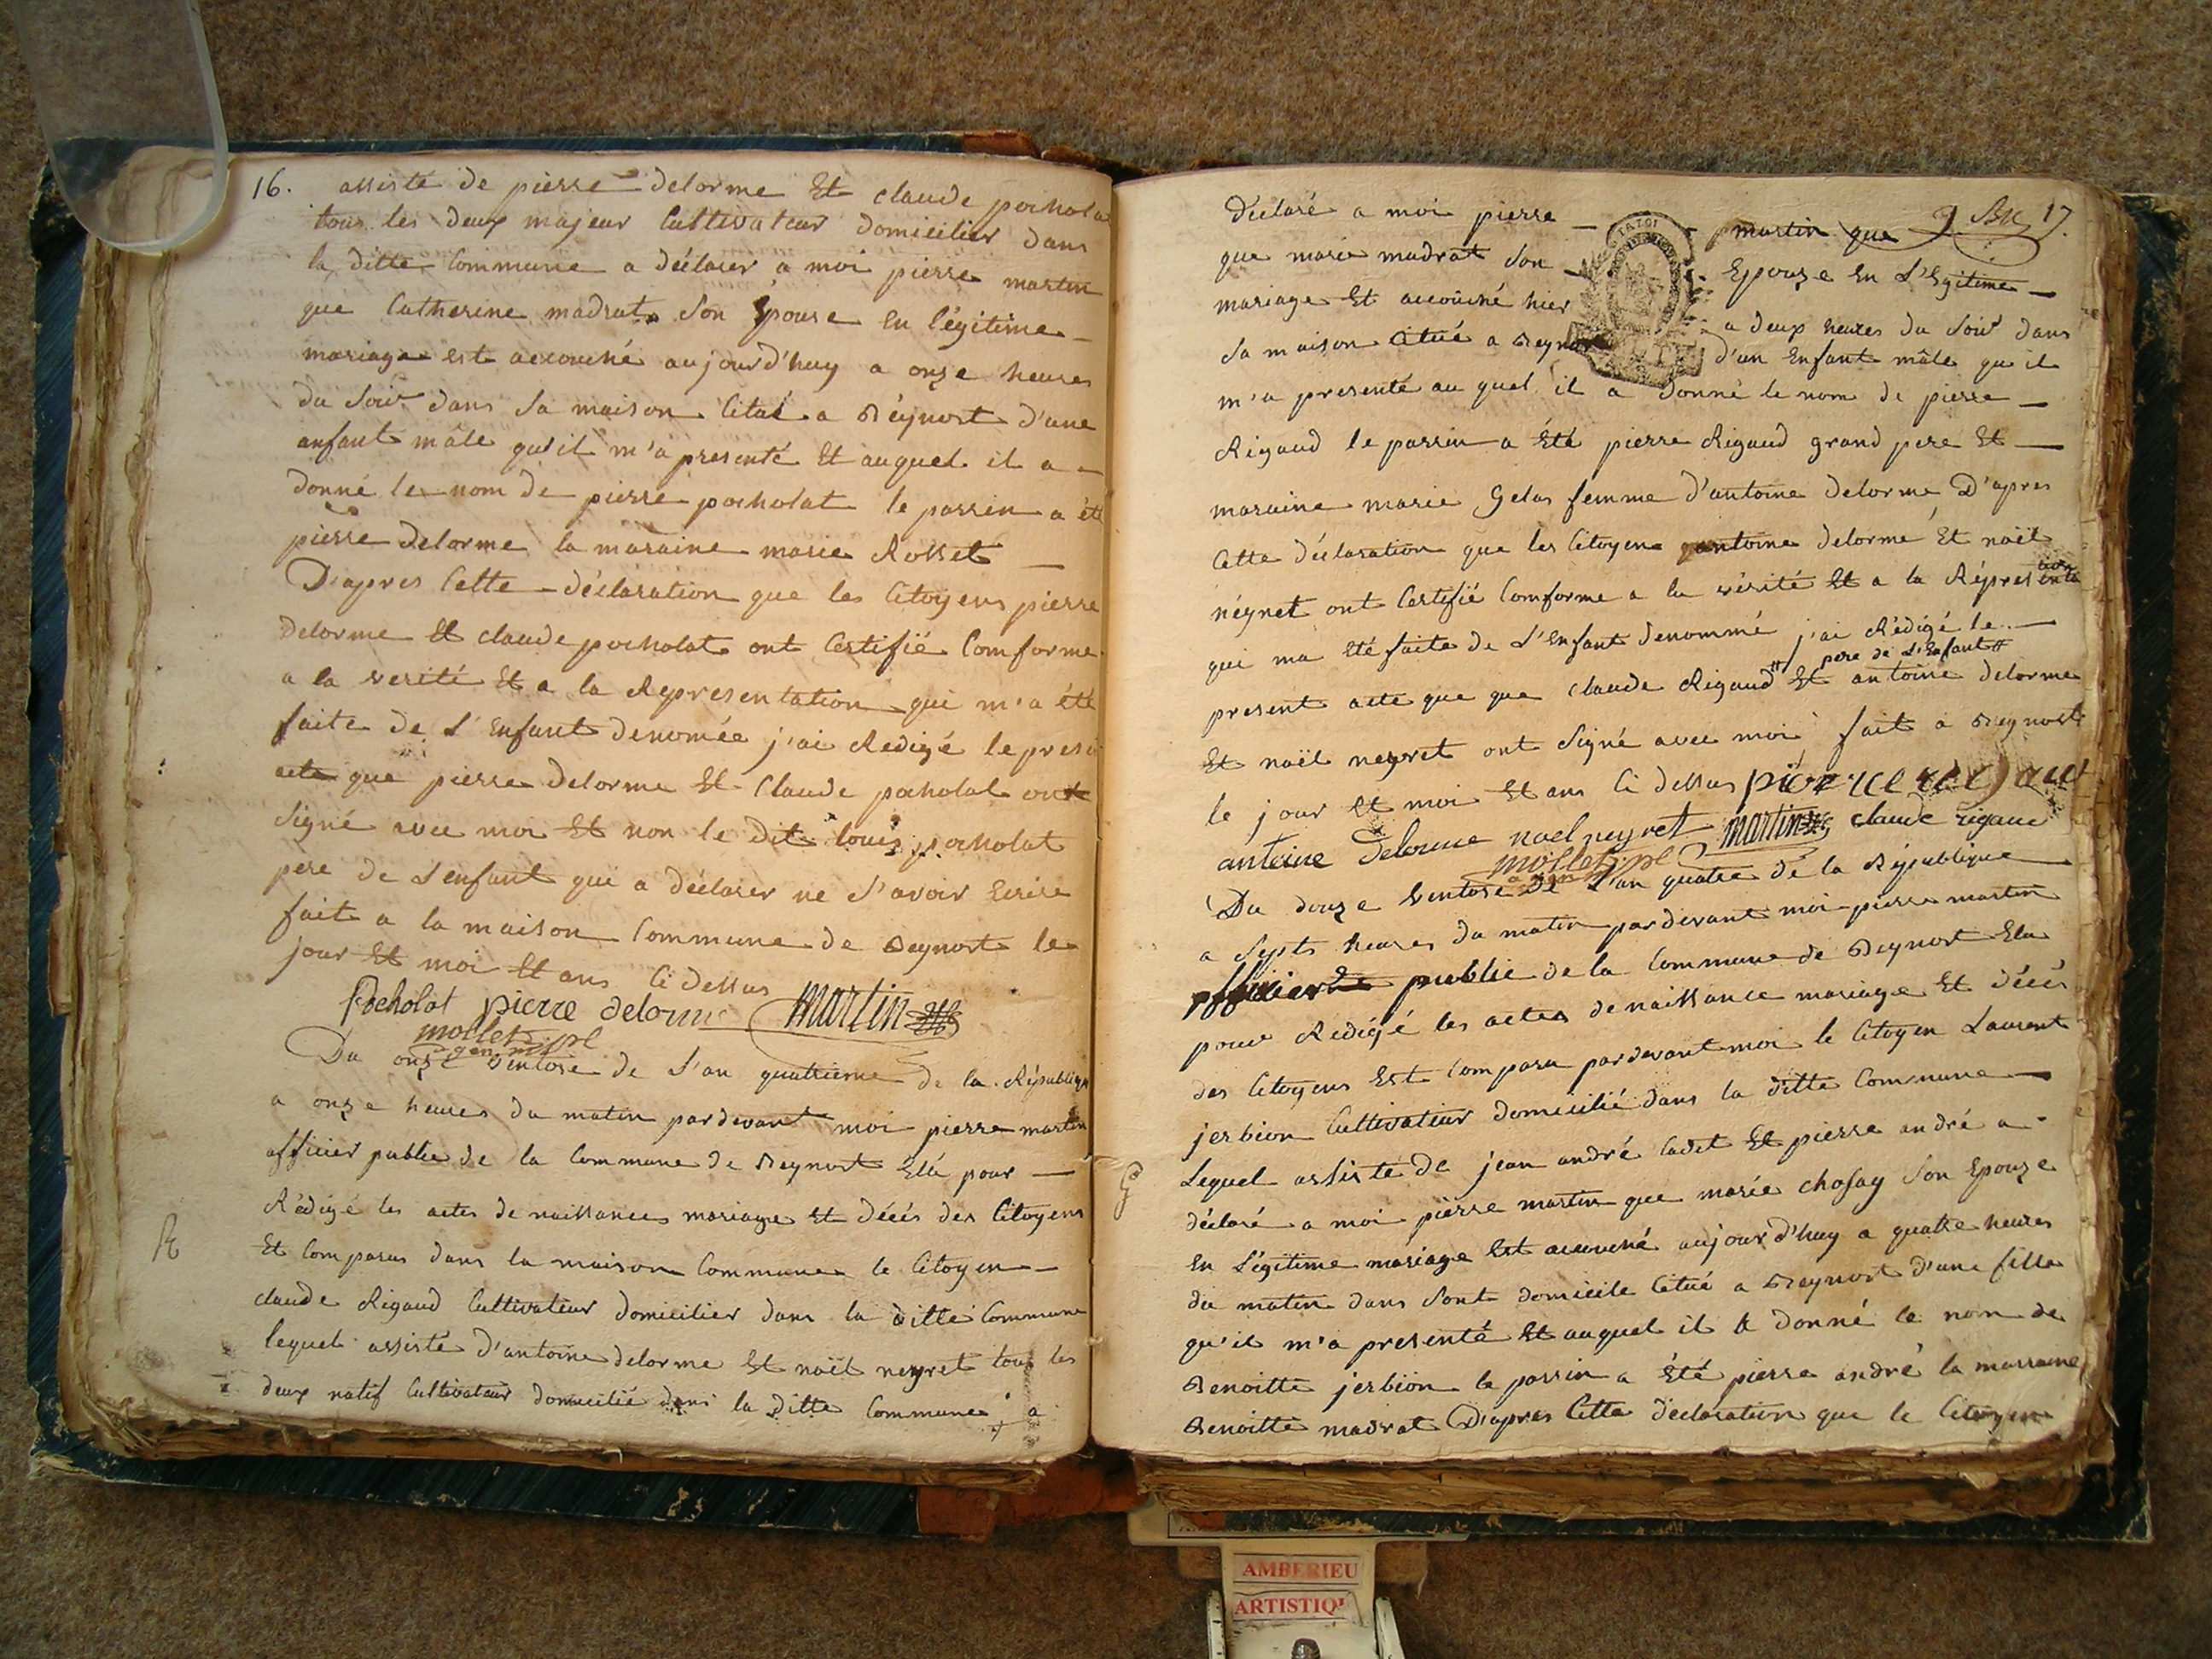 16.
assisté de pierre delorme Et claude pochola
tous les deux majeur Cultivateur domicilier dans
la ditte Commune a déclarer a moi pierre martin
que Catherine madrat Son Epouse En légitime
mariage est accouché aujourd'huy a onze heures
du Soir dans Sa maison Citué a Béynost d'une
anfant mâle qu'il m'a presenté Et auquel il a
donné le nom de pierre pocholat le parrin a été
pierre delorme la maraine marie Rosset
D'apres Cette déclaration que les Citoyens pierre
delorme Et claude pocholat ont Certifié Comforme
a la verité Et a la Representation qui m'a été
faite de L'Enfant denomée j'ai Redigé le presen
acte que pierre delorme Et Claude pocholat ont
Signé avec moi Et non le dit louis pocholat
pere de L'enfant qui a déclarer ne S'avoir Ecrire
fait a la maison Commune de Beynost le
jour Et moi Et ans Ci dessus
Pocholat pierre delorme martin
mollet
Du onze Ventose de L'an quatrieme de la République
a onze heures du matin pardevant moi pierre martin
officier public de la Commune de Beynost Elu pour
Rédigé les actes de naissances mariage Et décés des Citoyens
Et Comparus dans la maison Commune le Citoyen
claude Rigaud Cultivateur domicilier dans la ditte Commune
lequel assisté d'antoine delorme Et noël neyret tous les
deux natif Cultivateur domicilié dans la ditte Commune a
17.
déclaré a moi pierre martin que
que marie madrat Son Epouze En L'Egitime
mariage Et accouché hier a deux heures du Soir dans
Sa maison Citué a Beynost d'un Enfant mâle qu'il
m'a presenté au quel il a donné le nom de pierre
Rigaud le parrin a Eté pierre Rigaud grand pere Et
maraine marie Gelas femme d'antoine delorme D'apres
Cette déclaration que les Citoyens antoine delorme Et noël
néyret ont Certifié Comforme a la vérité Et a la Réprésentation
qui ma Eté faite de L'Enfant denommé j'ai Rédigé le
pere de L'Enfant
present acte que que claude Rigaud Et antoine delorme
Et noël neyret ont Signé avec moi fait a Beynost
le jour Et moi Et ans Ci dessus pierre rigaud
antoine delorme noel neyret martin claude rigaud
mollet
Du douze Ventose de L'an quatre de la République
a Septs heures du matin pardevant moi pierre martin
officier public de la Commune de Beynost Elu
pour Rédigé les actes de naissance mariage Et décés
des Citoyens Est Comparu pardevant moi le Citoyen Laurent
jerbion Cultivateur domicilié dans la ditte Commune
Lequel assisté de jean andré Cadet Et pierre andré a
déclaré a moi pierre martin que marie chosay Son Epouze
En Légitime mariage Est accouché aujourd'huy a quatre heures
du matin dans Sont domicile Citué a Beynost d'une fille
qu'il m'a presenté Et auquel il a donné le nom de
Benoitte jerbion le parrin a été pierre andré la marraine
Benoitte madrat D'apres Cette déclaration que le Citoyen
AMBERIEU
ARTISTIQ